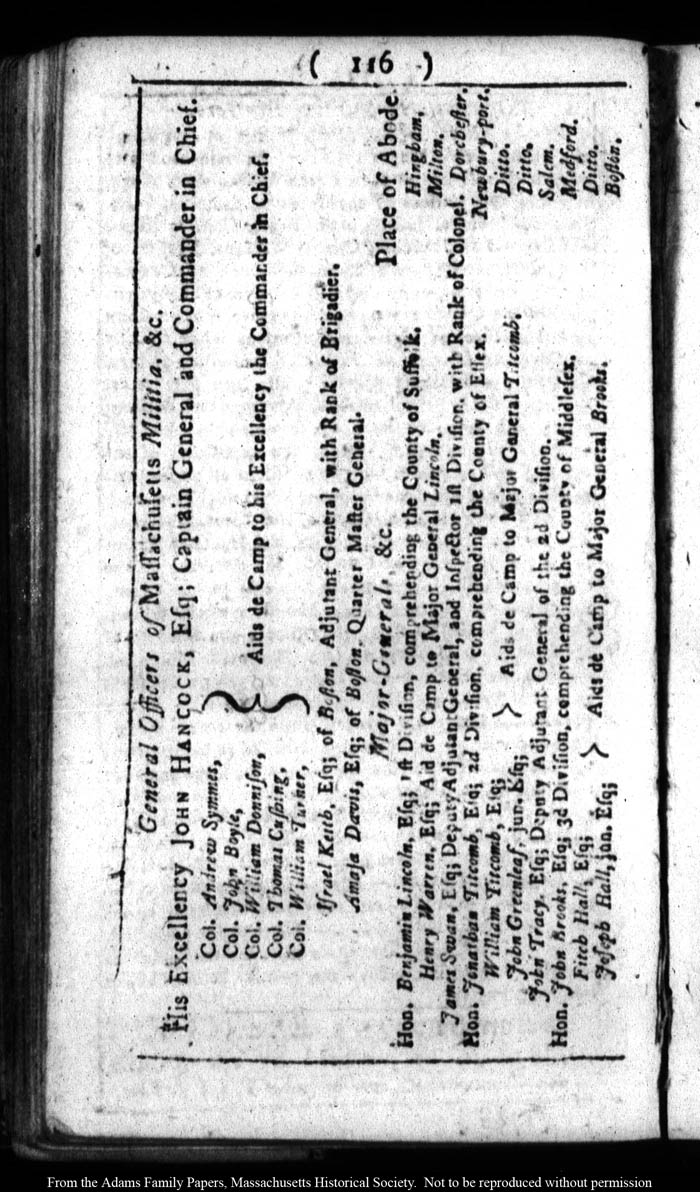 ( 116 )
General Officers of Maſſachuſetts Militia, &c.
His Excellency JOHN HANCOCK, Eſq; Captain General and Commander in Chief.
Col. Andrew Symmes,
Col. John Boyle,
Col. William Donniſon,
Col. Thomas Cuſhing,
Col. William Turner,
} Aids de Camp to his Excellency the Commander in Chief.
Iſrael Keith, Eſq; of Boſton, Adjutant General, with Rank of Brigadier.
Amaſa Davis, Eſq; of Boſton, Quarter Maſter General.
Major-Generals, &c. Place of Abode.
Hon. Benjamin Lincoln, Eſq; 1ſt Diviſion, comprehending the County of Suffolk. Hingham,
Henry Warren, Eſq; Aid de Camp to Major General Lincoln. Milton.
James Swan, Eſq; Deputy Adjutant General, and Inſpector 1ſt Diviſion, with Rank of Colonel. Dorcheſter.
Hon. Jonathan Titcomb, Eſq; 2d Diviſion, comprehending the County of Eſſex. Newbury-port.
William Titcomb, Eſq; Ditto.
John Greenleaf, jun. Eſq; } Aids de Camp to Major General Titcomb. Ditto.
John Tracy, Eſq; Deputy Adjutant General of the 2d Diviſion. Salem.
Hon. John Brooks, Eſq; 3d Diviſion, comprehending the County of Middleſex. Medford.
Fitch Hall, Eſq; Ditto.
Joſeph Hall, jun. Eſq; } Aids de Camp to Major General Brooks. Boſton.
From the Adams Family Papers, Massachusetts Historical Society. Not to be reproduced without permission